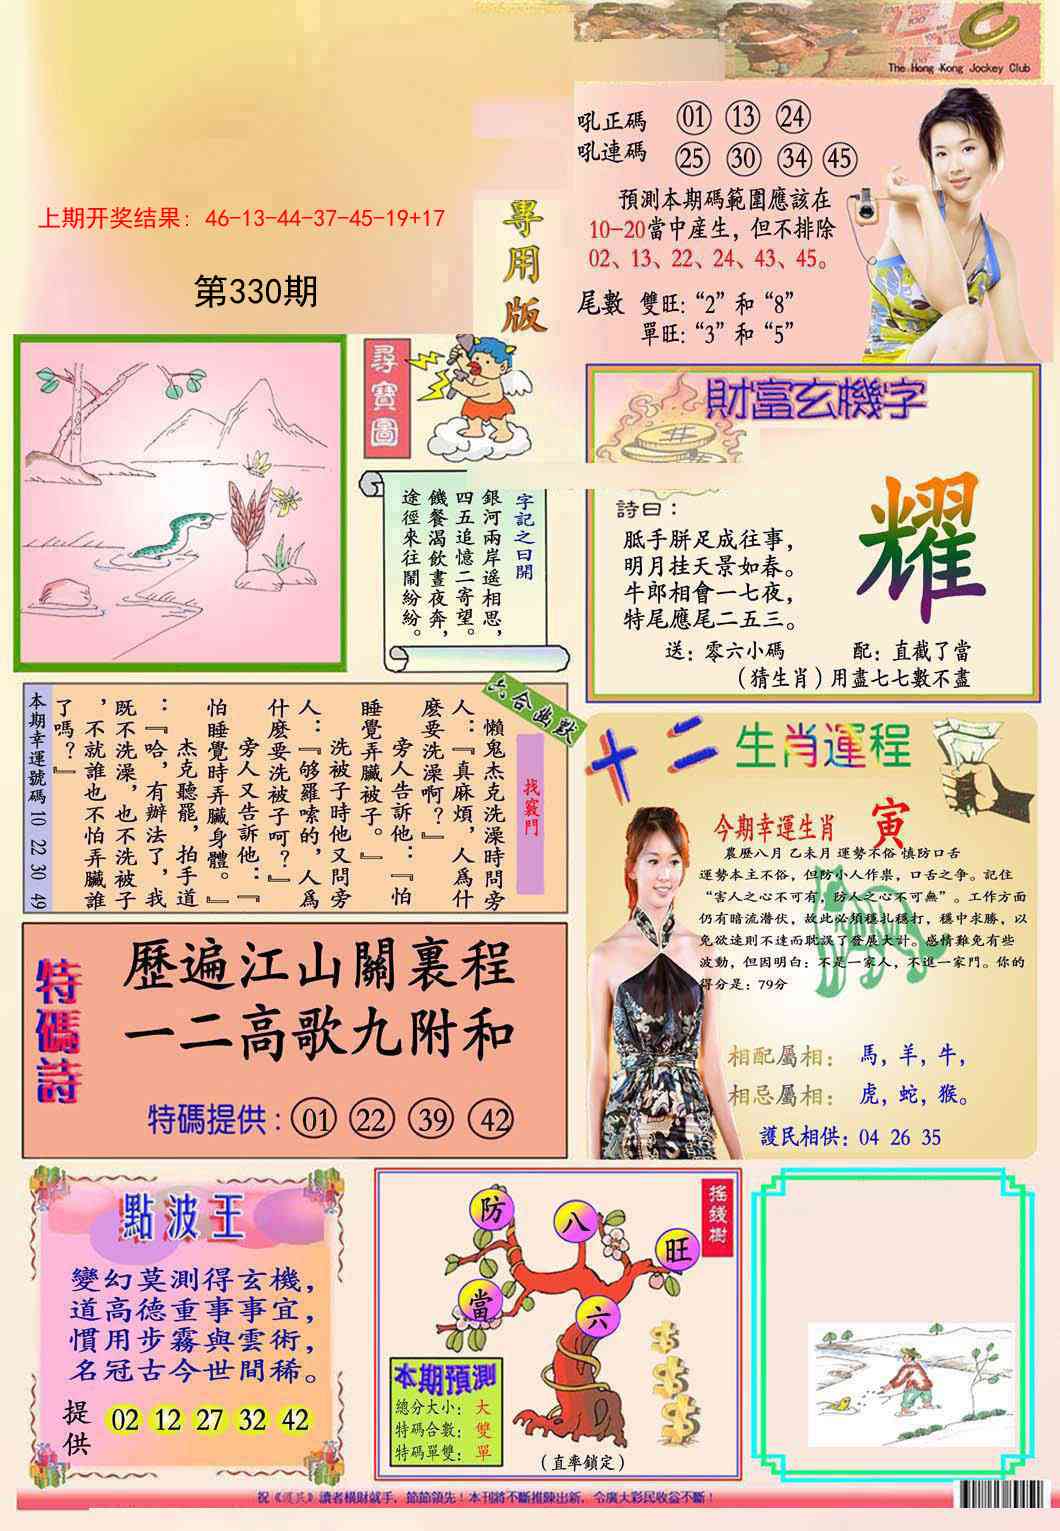 The Hong Kong Jockey Club
吼正碼 01 13 24
吼連碼 25 30 34 45
預測本期碼範圍應該在
10-20當中産生，但不排除
02、13、22、24、43、45。
尾數 雙旺：“2”和“8”
單旺：“3”和“5”
上期开奖结果：46-13-44-37-45-19+17
第330期
專用版
尋寶圖
字記之曰開
銀河兩岸遥相思，
四五追憶二寄望。
饑餐渴飲晝夜奔，
途徑來往鬧紛紛。
財富玄機字
詩曰：
胝手胼足成往事，
明月挂天景如春。
牛郎相會一七夜，
特尾應尾二五三。
耀
送：零六小碼 配：直截了當
（猜生肖）用盡七七數不盡
六合幽默
找竅門
懶鬼杰克洗澡時問旁
人：『真麻煩，人爲什
麽要洗澡啊？』
旁人告訴他：『怕
睡覺弄臟被子。』
洗被子時他又問旁
人：『够羅嗦的，人爲
什麽要洗被子呵？』
旁人又告訴他：『
怕睡覺時弄臟身體。』
杰克聽罷，拍手道
：『哈，有辦法了，我
既不洗澡，也不洗被子
，不就誰也不怕弄臟誰
了嗎？』
本期幸運號碼 10 22 30 49
十二生肖運程
今期幸運生肖 寅
農歷八月 乙未月 運勢不俗 慎防口舌
運勢本主不俗，但防小人作祟，口舌之争。記住
“害人之心不可有，防人之心不可無”。工作方面
仍有暗流潛伏，故此必須穩扎穩打，穩中求勝，以
免欲速則不達而耽誤了發展大計。感情難免有些
波動，但因明白：不是一家人，不進一家門。你的
得分是：79分
相配屬相：馬，羊，牛，
相忌屬相：虎，蛇，猴。
護民相供：04 26 35
特碼詩
歷遍江山關裏程
一二高歌九附和
特碼提供：01 22 39 42
點波王
變幻莫測得玄機，
道高德重事事宜，
慣用步霧與雲術，
名冠古今世間稀。
提供 02 12 27 32 42
搖錢樹
防
八
旺
當
六
本期預測
總分大小：大
特碼合數：雙
特碼單雙：單
（直率鎖定）
祝《護民》讀者横財就手，節節領先！本刊將不斷推陳出新，令廣大彩民收益不斷！